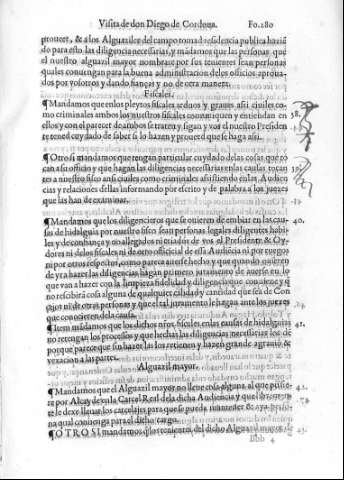 Visita de don Diego de Cordoua. Fo.280
proueer, & a los Alguaziles del campo toma d̃ residencia publica haziẽ
do para esto las diligencias necessarias, y mãdamos que las personas que
el nuestro alguazil mayor nombrare por sus tenientes sean personas
quales conuingan para la buena administracion destos officios aproua-
dos por vosotros y dando fianças y no de otra manera.
Fiscales.
¶Mandamos que en los pleytos fiscales arduos y graues assi ciuiles co 38.
mo criminales ambos los nuestros fiscales comuniquen y entiendan en
ellos y con el parecer de ambos se traten y sigan y vos el nuestro Presiden
te tened cuydado de saber si lo hazan y proueed que se haga assi.
¶Otrosi mandamos que tengan particular cuydado de las cosas que to
can a su officio y que hagan las diligencias necessarias en las causas tocan
tes a nuestro fisco assi ciuales como criminales assistiendo en las Audien
cias y relaciones dellas informando por escrito y de palabra a los juezes
que las han de examinar.
¶Mandamos que los diligencieros que se ouieren de embiar en las cau- 40.
sas de hidalguia por nuestro fisco sean personas legales diligentes habi
les y de confiança y no allegados ni criados de vos el Presidente & Oy-
dores ni de los fiscales ni de otro official de essa Audiencia ni por ruegos
ni por otros respectos, como parece auerse hecho y que quando ouieren
de yr a hazer las diligencias hagan juramento de auerse en lo
que van a hazer con la limpieza fidelidad y diligencia que conuiene y q̃
no rescibirã cosa alguna de qualquier calidad y cantidad que sea de Con
cejos ni de otras personas y que el tal juramento le hagan ante los juezes
que conocieren de la causa.
¶Item mãdamos que los dichos nr̃os fiscales en las causas de hidalguias 41.
no retengan los processos y que hechas las diligencias necessarias los dẽ
porque parece que sin hazerlas los retienen y hazen grande agrauio &
vexacion a las partes.
Alguazil mayor.
¶Mandamos que el Alguazil mayor no lleue cosa alguna al que pusie- 42.
re por Alcayde en la Carcel Real de la dicha Audiencia y que libremen-
te le dexe lleuar los carcelajes para que se pueda mantener & aya perso-
na qual conuenga para el dicho cargo.
¶OTROSI mandamos que los tenientes del dicho Alguazil mayor de 43.
Bbb 4